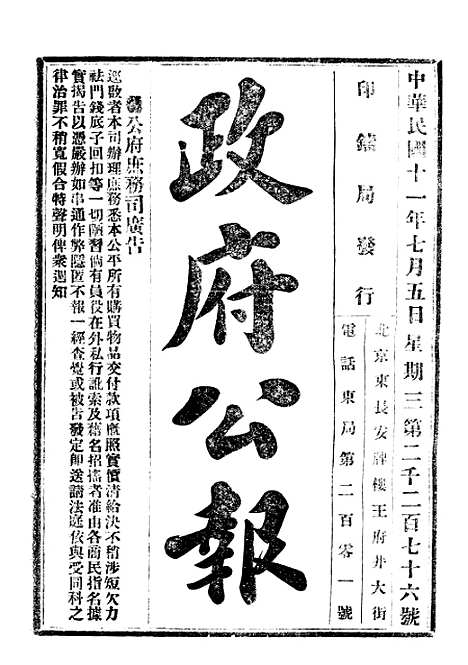 中華民國十一年七月五日星期三第二千二百七十六號
印鑄局發行
北京東長安牌樓王府井大街
電話東局第二百零一號
政府公報
公府庶務司廣告
逕啟者本司辦理庶務悉本公平所有購買物品交付款項應照實價清給決不稍涉短欠力
祛門錢底子回扣等一切陋習倘有員役在外私行訛索及藉名招搖者准由各商民指名據
實揭告以憑嚴辦如串通作弊隱匿不報一經查覺或被告發定即送請法庭依與受同科之
律治罪不稍寬假合特聲明俾衆週知